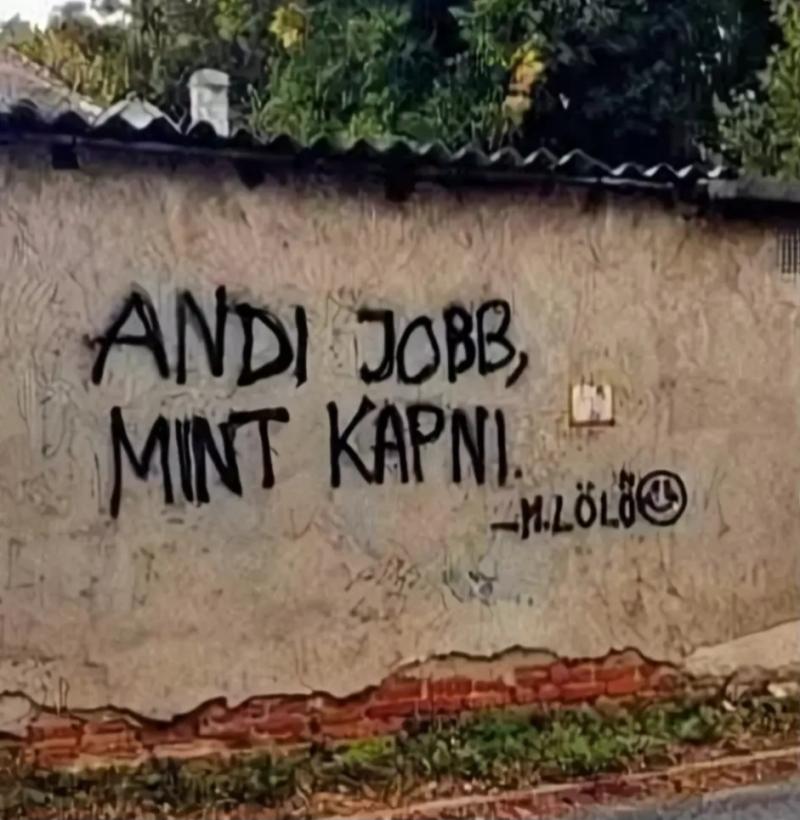 ANDI JOBB,
MINT KAPNI.
–M.LÖLŐ